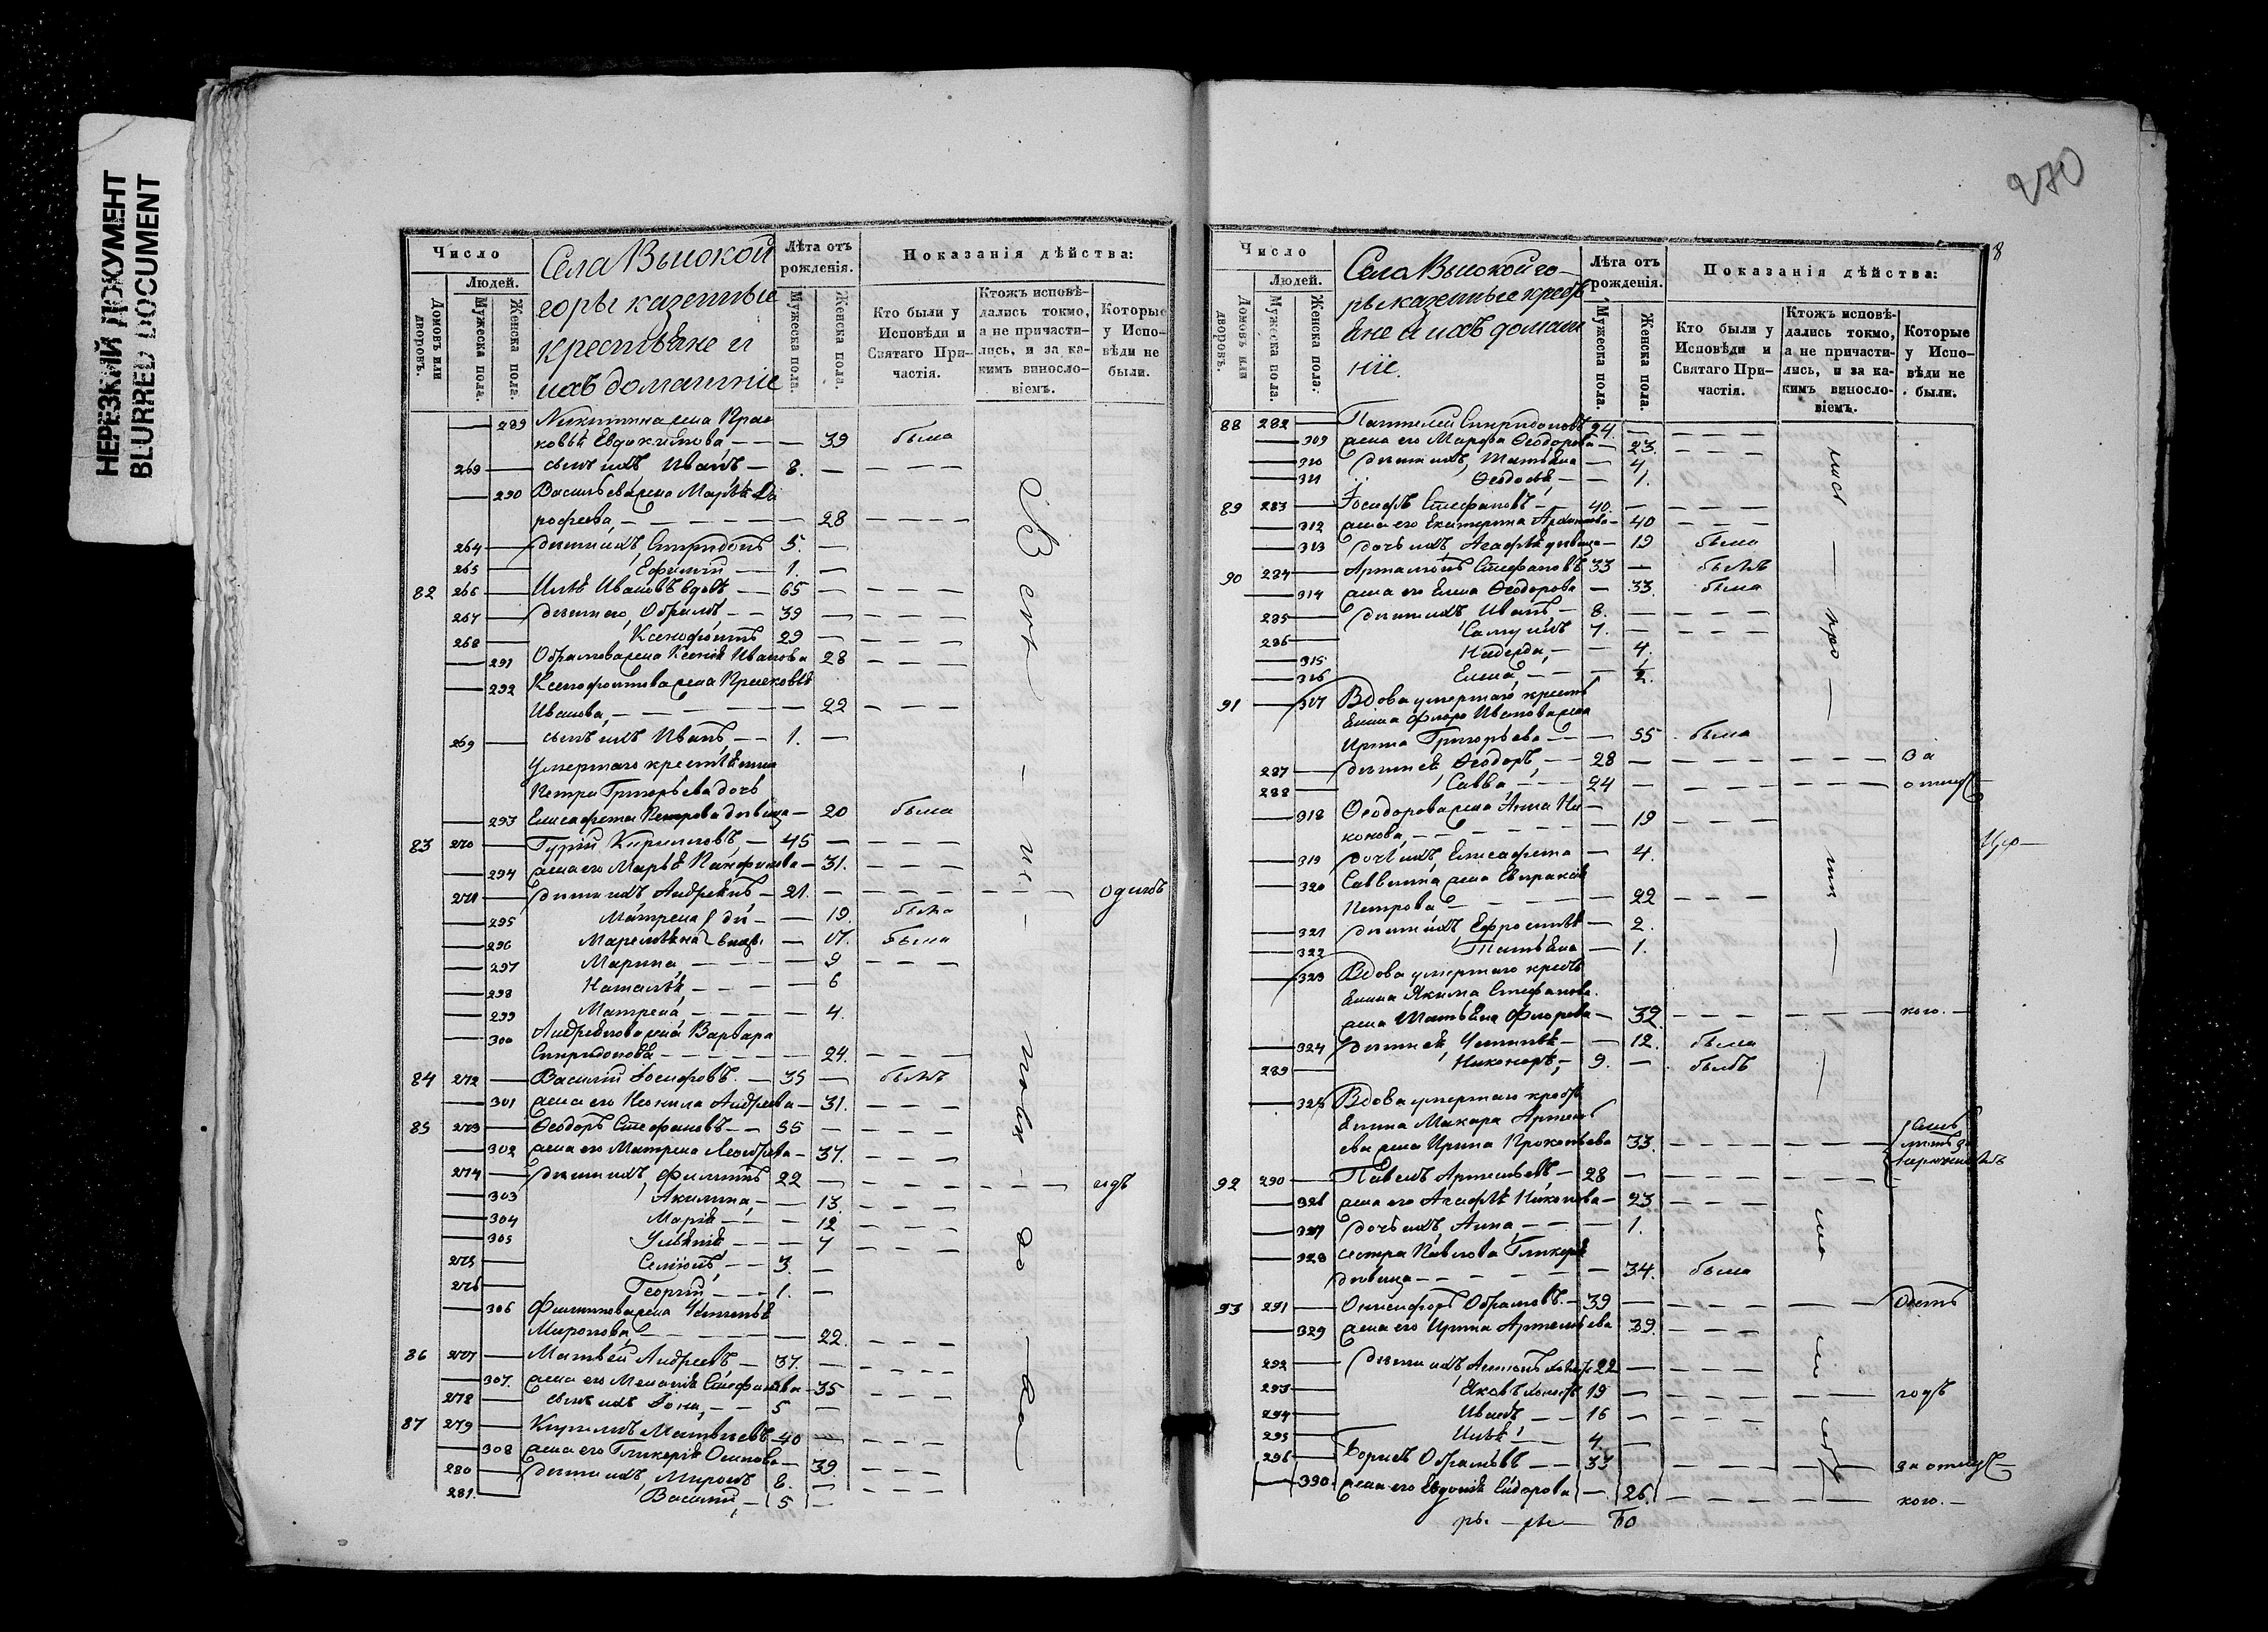 НЕРЕЗКИЙ ДОКУМЕНТ
BLURRED DOCUMENT
270
8
Число
Людей.
Домовъ или дворовъ.
Мужеска пола.
Женска пола.
Села Высокой
горы казенные
крестьяне и
ихъ домашніе
Лѣта отъ рожденія.
Мужеска пола.
Женска пола.
Показанія дѣйства:
Кто были у Исповѣди и Святаго Причастія.
Ктожъ исповѣдались токмо, а не причастились, и за какимъ винословіемъ.
Которые у Исповѣди не были.
289 Никитина жена Прас
ковья Евдокимова 39 была
269 сынъ ихъ Иванъ 8.
290 Васильева жена Марья До
рофеева 28
264 дѣти ихъ, Спиридонъ 5.
265 Ефимій 1.
82 266 Илья Ивановъ вдовъ 65
267 дѣти его, Обрамъ 39
268 Ксенофонтъ 29
291 Обрамова жена Ксенія Иванова 28
292 Ксенофонтова жена Прасковья
Иванова 22
269 сынъ ихъ Иванъ 1.
Умершаго крестьянина
Петра Григорьева дочь
293 Елисафета Петрова дѣвица 20 была
83 270 Гурій Кирилловъ 45
294 жена его Марья Панфилова 31.
271 дѣти ихъ Андреянъ 21. одинъ
295 Матрена дѣ 19. была
296 вицы 17. была
297 Марина 9
298 Наталья 6
299 Матрена 4.
300 Андреянова жена Варвара
Спиридонова 24.
84 272 Василій Іосифовъ 35 былъ
301 жена его Неонила Андреева 31.
85 273 Ѳеодоръ Стефановъ 35
302 жена его Матрена 37.
274 дѣти ихъ, Филиппъ 22
303 Акилина 13.
304 Марія 12
305 Ульянія 7
275 3.
276 Георгій 1.
306 Филиппова жена Устинья
Миронова 22.
86 277 Матвей Андреевъ 37.
307. жена его Меланія Стефанова 35
278 сынъ ихъ Іона 5
87 279 Кириллъ Матвеевъ 40
308 жена его Гликерія Осипова 39
280 дѣти ихъ, Миронъ 8.
281. Василій 5
Число
Людей.
Домовъ или дворовъ.
Мужеска пола.
Женска пола.
Села Высокой го-
ры казенные кресть
яне и ихъ домаш
ніе.
Лѣта отъ рожденія.
Мужеска пола.
Женска пола.
Показанія дѣйства:
Кто были у Исповѣди и Святаго Причастія.
Ктожъ исповѣдались токмо, а не причастились, и за какимъ винословіемъ.
Которые у Исповѣди не были.
88 282 Пантелей Спиридоновъ 24.
309 жена его Марфа Ѳеодорова 23.
310 дѣти ихъ, Татьяна 4.
311 Ѳеодосья 1.
89 283 Іосифъ Стефановъ 40.
312 жена его Екатерина 40
313 дочь ихъ, Агафья дѣвица 19 была
90 284 Артамонъ Стефановъ 33 былъ
314 жена его Елена Ѳеодорова 33. была
285 дѣти ихъ, Иванъ 8.
286 Самуилъ 7.
315 Надежда 4.
316 Елена
91 317 Вдова умершаго кресть
янина Флора Иванова жена
Ирина Григорьева 55 была
287 дѣти ея Ѳеодоръ 28 За
288 Савва 24
318 Ѳеодорова жена Анна Ни
конова 19
319 дочь ихъ Елисафета 4.
320 Саввина жена Евпраксія
Петрова 22
321 дѣти ихъ, Ефросинья 2.
322 Татьяна 1.
323 Вдова умершаго кресть
янина Якима Стефанова
жена Татьяна Флорова 32
324 дѣти ея, Устинья 12. была
289 Никаноръ 9. былъ
325 Вдова умершаго кресть
янина Макара Артемь
ева жена Ирина Прокопьева 33.
92 290 Павелъ Артемьевъ 28
326 жена его Агафья Никонова 23
327 дочь ихъ Анна 1.
328 сестра Павлова Гликерія
дѣвица 34. была
93 291 Онисифоръ Обрамовъ 39
329 жена его Ирина Артемьева 39.
292 дѣти ихъ, 22
293 Яковъ 19 годъ
294 Иванъ 16
295 Илья 4.
296 Борисъ Обрамовъ 33
330 жена его Евдокія Сидорова 26.